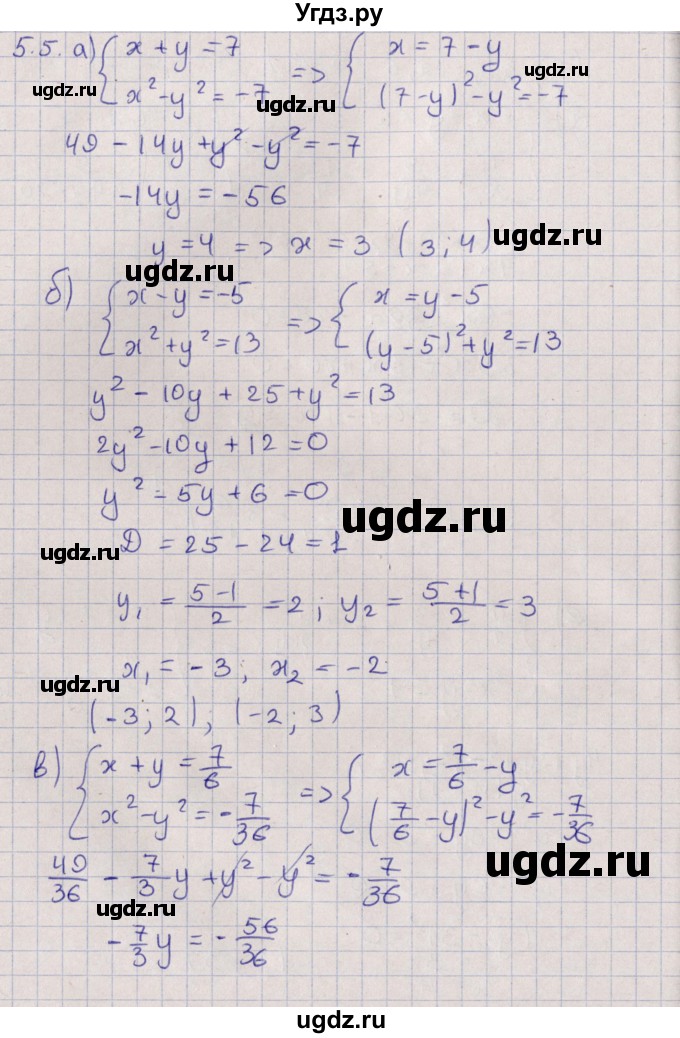 Угдз.ру
5.5. а) { x + y = 7 => { x = 7 - y
x² - y² = -7 (7 - y)² - y² = -7
ugdz.ru ugdz.ru ugdz.ru
49 - 14y + y² - y² = -7
-14y = -56
y = 4 => x = 3 (3; 4) ugdz.ru
ugdz.ru
б) { x - y = -5 => { x = y - 5
x² + y² = 13 (y - 5)² + y² = 13
y² - 10y + 25 + y² = 13
2y² - 10y + 12 = 0
y² - 5y + 6 = 0
ugdz.ru
ugdz.ru Д = 25 - 24 = 1
y₁ = (5 - 1)/2 = 2; y₂ = (5 + 1)/2 = 3
x₁ = -3; x₂ = -2
ugdz.ru
(-3; 2), (-2; 3)
в) { x + y = 7/6 => { x = 7/6 - y
x² - y² = -7/36 (7/6 - y)² - y² = -7/36
ugdz.ru
49/36 - 7/3 y + y² - y² = -7/36
ugdz.ru
-7/3 y = -56/36
ugdz.ru